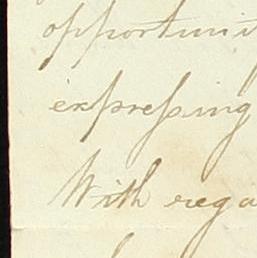 opportuni
expreſsing
With rega